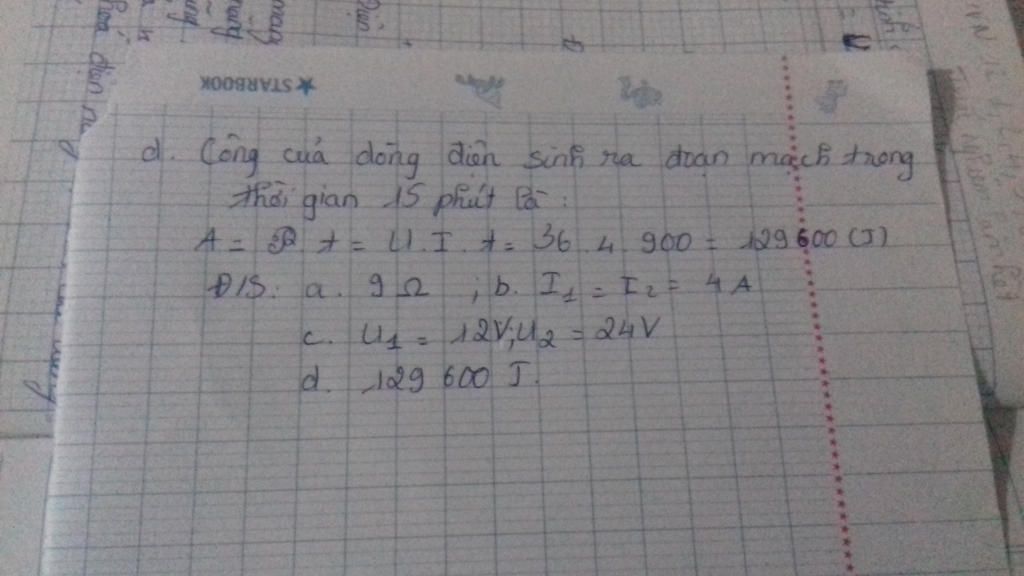 ★ STARBOOK
d. Công của dòng điện sinh ra đoạn mạch trong
thời gian 15 phút là:
A = P t = U. I. t = 36 . 4 . 900 = 129600 (J)
Đ/S: a. 9 Ω ; b. I1 = I2 = 4 A
c. U1 = 12V; U2 = 24V
d. 129 600 J.